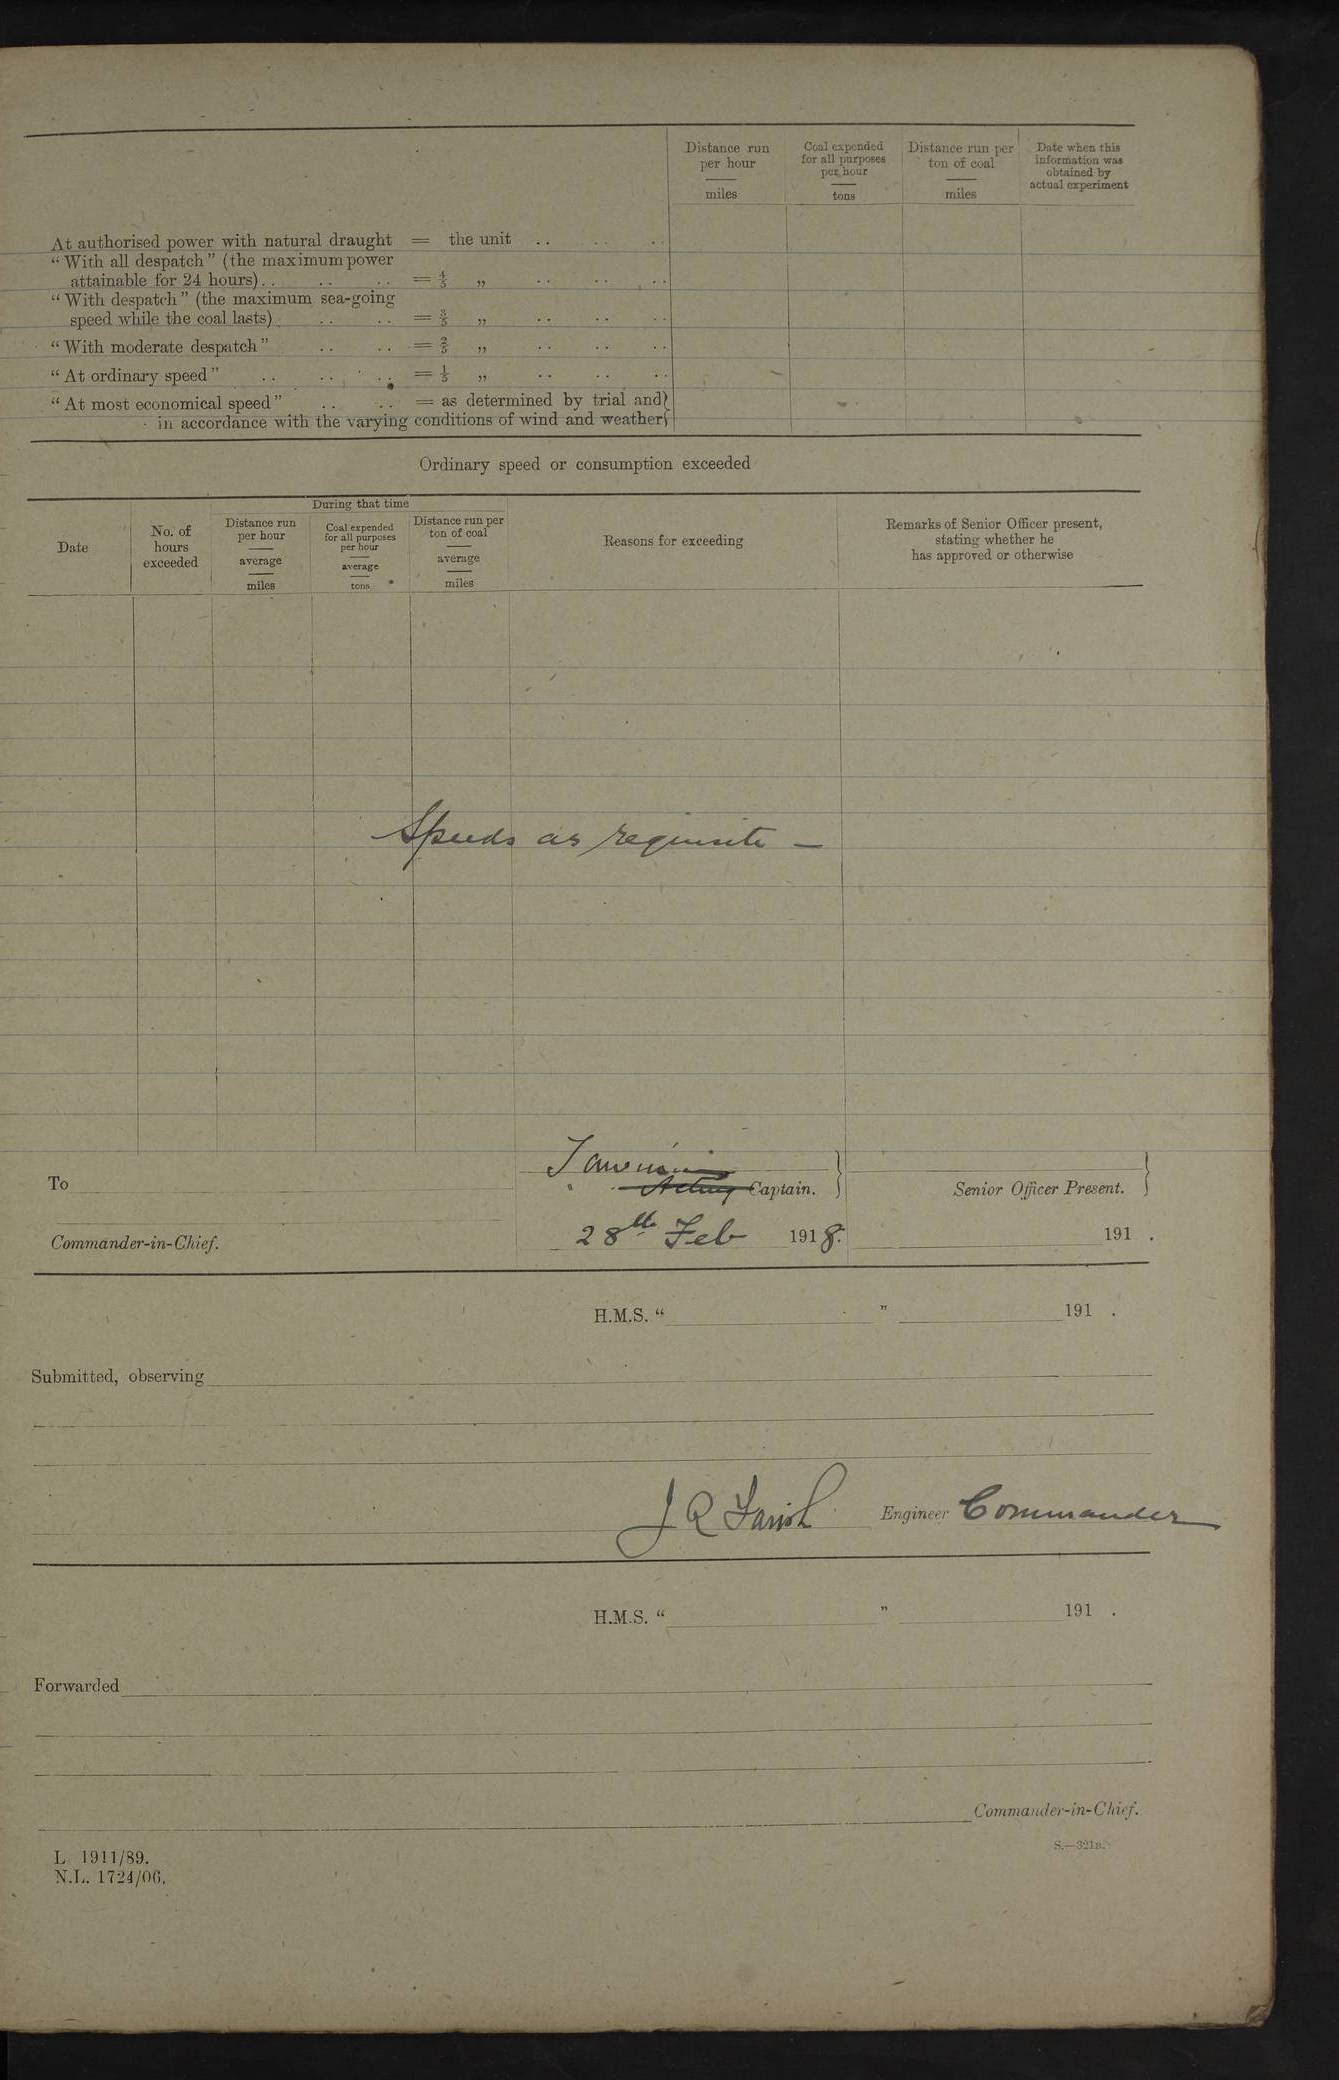 Distance run per hour — miles
Coal expended for all purposes per hour — tons
Distance run per ton of coal — miles
Date when this information was obtained by actual experiment
At authorised power with natural draught = the unit .. .. ..
“With all despatch” (the maximum power
attainable for 24 hours) .. .. .. = 4/5 „ .. .. ..
“With despatch” (the maximum sea-going
speed while the coal lasts) .. .. = 3/5 „ .. .. ..
“With moderate despatch” .. .. = 2/5 „ .. .. ..
“At ordinary speed” .. .. .. = 1/5 „ .. .. ..
“At most economical speed” .. .. = as determined by trial and}
in accordance with the varying conditions of wind and weather}
Ordinary speed or consumption exceeded
Date
No. of hours exceeded
During that time
Distance run per hour — average — miles
Coal expended for all purposes per hour — average — tons
Distance run per ton of coal — average — miles
Reasons for exceeding
Remarks of Senior Officer present, stating whether he has approved or otherwise
Speeds as requisite —
To
Acting Captain. }
Senior Officer Present. }
Commander-in-Chief.
28th Feb 1918.
191 .
H.M.S. “ ” 191 .
Submitted, observing
J R Farish Engineer Commander
H.M.S. “ ” 191 .
Forwarded
Commander-in-Chief.
S.—321a.
L 1911/89.
N.L. 1724/06.